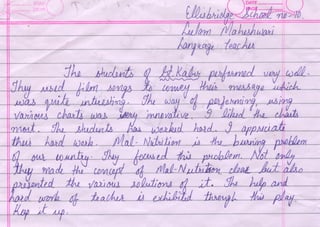 Ellisbridge School no-10.
Neelam Maheshwari
Language Teacher
The students of St. Kabir performed very well.
They used film songs to convey their message which
was quite interesting. The way of performing, using
various charts was very innovative. I liked the charts
most. The students has worked hard. I appreciate
their hard work. Mal-Nutrition is the burning problem
of our country. They focused this problem. Not only
they made the concept of Mal-Nutrition clear but also
presented the various solutions of it. The help and
hard work of teacher is exhibited through this play.
Keep it up.